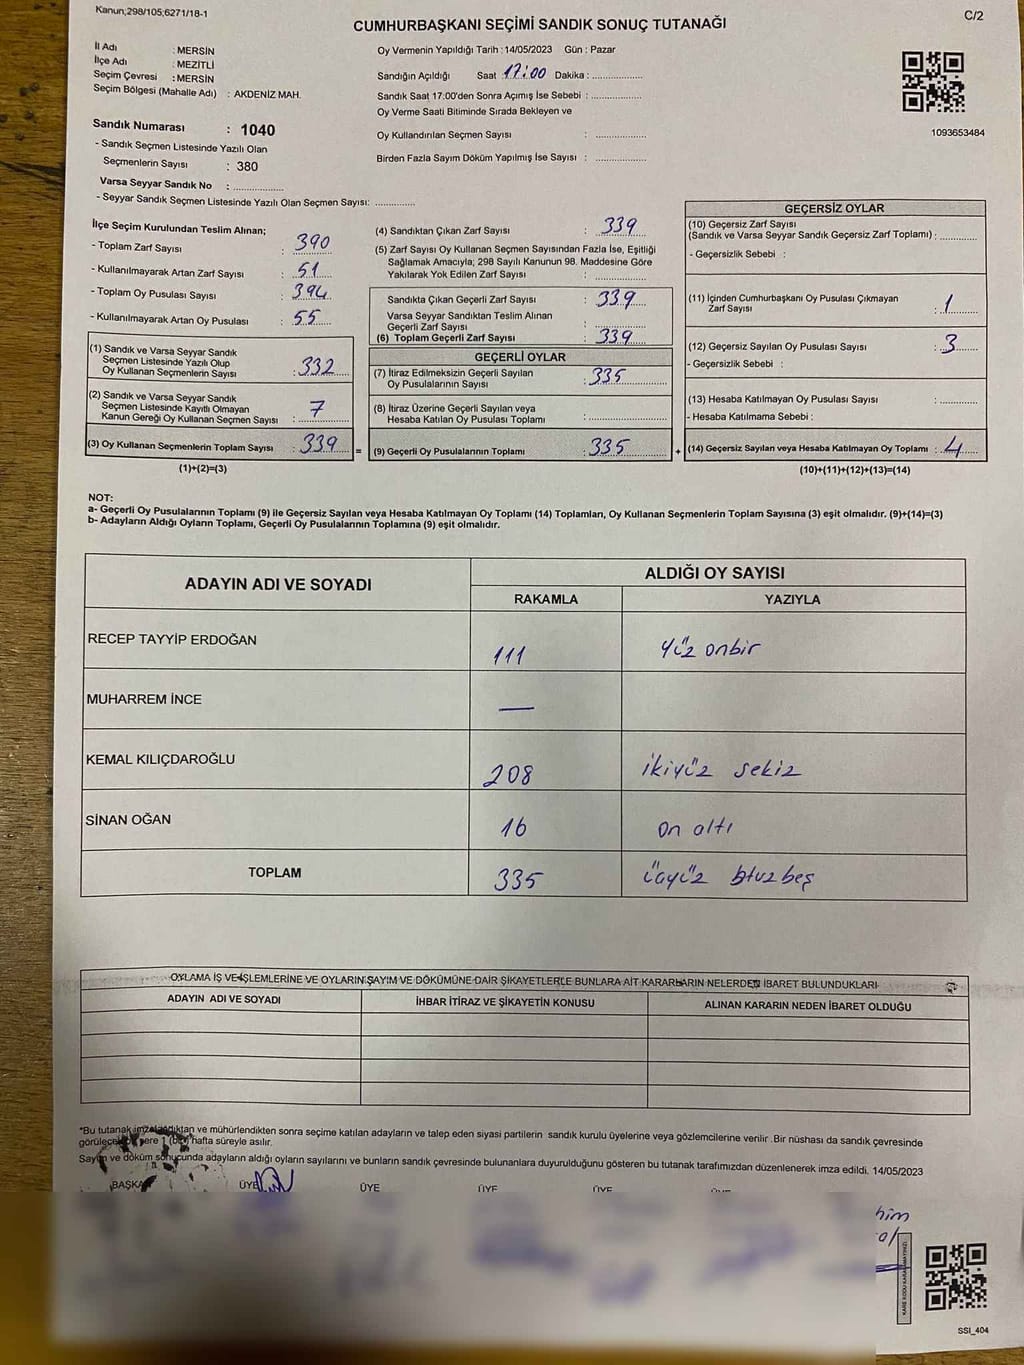 Kanun;298/105;6271/18-1
C/2
CUMHURBAŞKANI SEÇİMİ SANDIK SONUÇ TUTANAĞI
İl Adı : MERSİN
İlçe Adı : MEZİTLİ
Seçim Çevresi : MERSİN
Seçim Bölgesi (Mahalle Adı) : AKDENİZ MAH.
Sandık Numarası : 1040
- Sandık Seçmen Listesinde Yazılı Olan
Seçmenlerin Sayısı : 380
Varsa Seyyar Sandık No : ................
- Seyyar Sandık Seçmen Listesinde Yazılı Olan Seçmen Sayısı: ............
Oy Vermenin Yapıldığı Tarih : 14/05/2023 Gün : Pazar
Sandığın Açıldığı Saat 17:00 Dakika : ................
Sandık Saat 17:00'den Sonra Açımış İse Sebebi : ................
Oy Verme Saati Bitiminde Sırada Bekleyen ve
Oy Kullandırılan Seçmen Sayısı : ................
Birden Fazla Sayım Döküm Yapılmış İse Sayısı : ................
1093653484
İlçe Seçim Kurulundan Teslim Alınan;
- Toplam Zarf Sayısı : 390
- Kullanılmayarak Artan Zarf Sayısı : 51
- Toplam Oy Pusulası Sayısı : 394
- Kullanılmayarak Artan Oy Pusulası : 55
(1) Sandık ve Varsa Seyyar Sandık
Seçmen Listesinde Yazılı Olup
Oy Kullanan Seçmenlerin Sayısı : 332
(2) Sandık ve Varsa Seyyar Sandık
Seçmen Listesinde Kayıtlı Olmayan
Kanun Gereği Oy Kullanan Seçmen Sayısı : 7
(3) Oy Kullanan Seçmenlerin Toplam Sayısı : 339 =
(1)+(2)=(3)
(4) Sandıktan Çıkan Zarf Sayısı : 339
(5) Zarf Sayısı Oy Kullanan Seçmen Sayısından Fazla İse, Eşitliği
Sağlamak Amacıyla; 298 Sayılı Kanunun 98. Maddesine Göre
Yakılarak Yok Edilen Zarf Sayısı : ................
Sandıkta Çıkan Geçerli Zarf Sayısı : 339
Varsa Seyyar Sandıktan Teslim Alınan
Geçerli Zarf Sayısı : ................
(6) Toplam Geçerli Zarf Sayısı : 339
GEÇERLİ OYLAR
(7) İtiraz Edilmeksizin Geçerli Sayılan
Oy Pusulalarının Sayısı : 335
(8) İtiraz Üzerine Geçerli Sayılan veya
Hesaba Katılan Oy Pusulası Toplamı : ................
(9) Geçerli Oy Pusulalarının Toplamı : 335 +
GEÇERSİZ OYLAR
(10) Geçersiz Zarf Sayısı
(Sandık ve Varsa Seyyar Sandık Geçersiz Zarf Toplamı) : ............
- Geçersizlik Sebebi :
(11) İçinden Cumhurbaşkanı Oy Pusulası Çıkmayan
Zarf Sayısı : 1
(12) Geçersiz Sayılan Oy Pusulası Sayısı : 3
- Geçersizlik Sebebi :
(13) Hesaba Katılmayan Oy Pusulası Sayısı : ............
- Hesaba Katılmama Sebebi :
(14) Geçersiz Sayılan veya Hesaba Katılmayan Oy Toplamı : 4
(10)+(11)+(12)+(13)=(14)
NOT:
a- Geçerli Oy Pusulalarının Toplamı (9) ile Geçersiz Sayılan veya Hesaba Katılmayan Oy Toplamı (14) Toplamları, Oy Kullanan Seçmenlerin Toplam Sayısına (3) eşit olmalıdır. (9)+(14)=(3)
b- Adayların Aldığı Oyların Toplamı, Geçerli Oy Pusulalarının Toplamına (9) eşit olmalıdır.
ADAYIN ADI VE SOYADI
ALDIĞI OY SAYISI
RAKAMLA YAZIYLA
RECEP TAYYİP ERDOĞAN 111 Yüz onbir
MUHARREM İNCE —
KEMAL KILIÇDAROĞLU 208 ikiyüz sekiz
SİNAN OĞAN 16 on altı
TOPLAM 335 üçyüz otuz beş
OYLAMA İŞ VE İŞLEMLERİNE VE OYLARIN SAYIM VE DÖKÜMÜNE DAİR ŞİKAYETLERLE BUNLARA AİT KARARLARIN NELERDEN İBARET BULUNDUKLARI
ADAYIN ADI VE SOYADI
İHBAR İTİRAZ VE ŞİKAYETİN KONUSU
ALINAN KARARIN NEDEN İBARET OLDUĞU
*Bu tutanak imzalandıktan ve mühürlendikten sonra seçime katılan adayların ve talep eden siyasi partilerin sandık kurulu üyelerine veya gözlemcilerine verilir .Bir nüshası da sandık çevresinde
görülecek bir yere 1 (bir) hafta süreyle asılır.
Sayım ve döküm sonucunda adayların aldığı oyların sayılarını ve bunların sandık çevresinde bulunanlara duyurulduğunu gösteren bu tutanak tarafımızdan düzenlenerek imza edildi. 14/05/2023
BAŞKAN ÜYE ÜYE ÜYE ÜYE
SSI_404